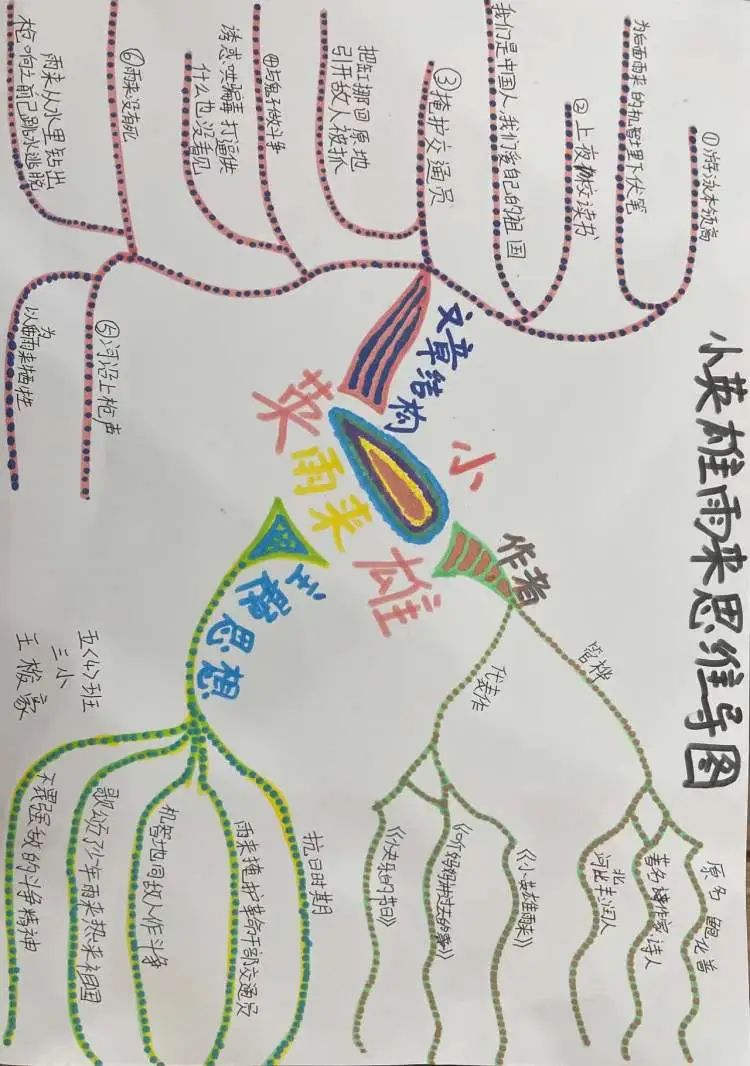 小英雄雨来思维导图
小英雄
雨来
作者
管桦
原名 鲍化普
著名作家 诗人
河北丰润人
代表作
《小英雄雨来》
《听妈妈讲过去的事》
《小英雄的节日》
文章结构
①游泳本领高
为后面雨来的机智埋下伏笔
②上夜校读书
我们是中国人,我们爱自己的祖国
③掩护交通员
把缸挪回原地
引开敌人被抓
④与鬼子做斗争
诱惑.哄骗.毒打逼供
什么也没看见
⑤河沿上枪声
以为雨来牺牲
⑥雨来没有死
雨来从水里钻出
枪响之前已跳水逃脱
主题思想
抗日时期
雨来掩护革命干部交通员
机智地同敌人作斗争
歌颂了少年雨来热来祖国
不畏强敌的斗争精神
五〈4〉班
三小